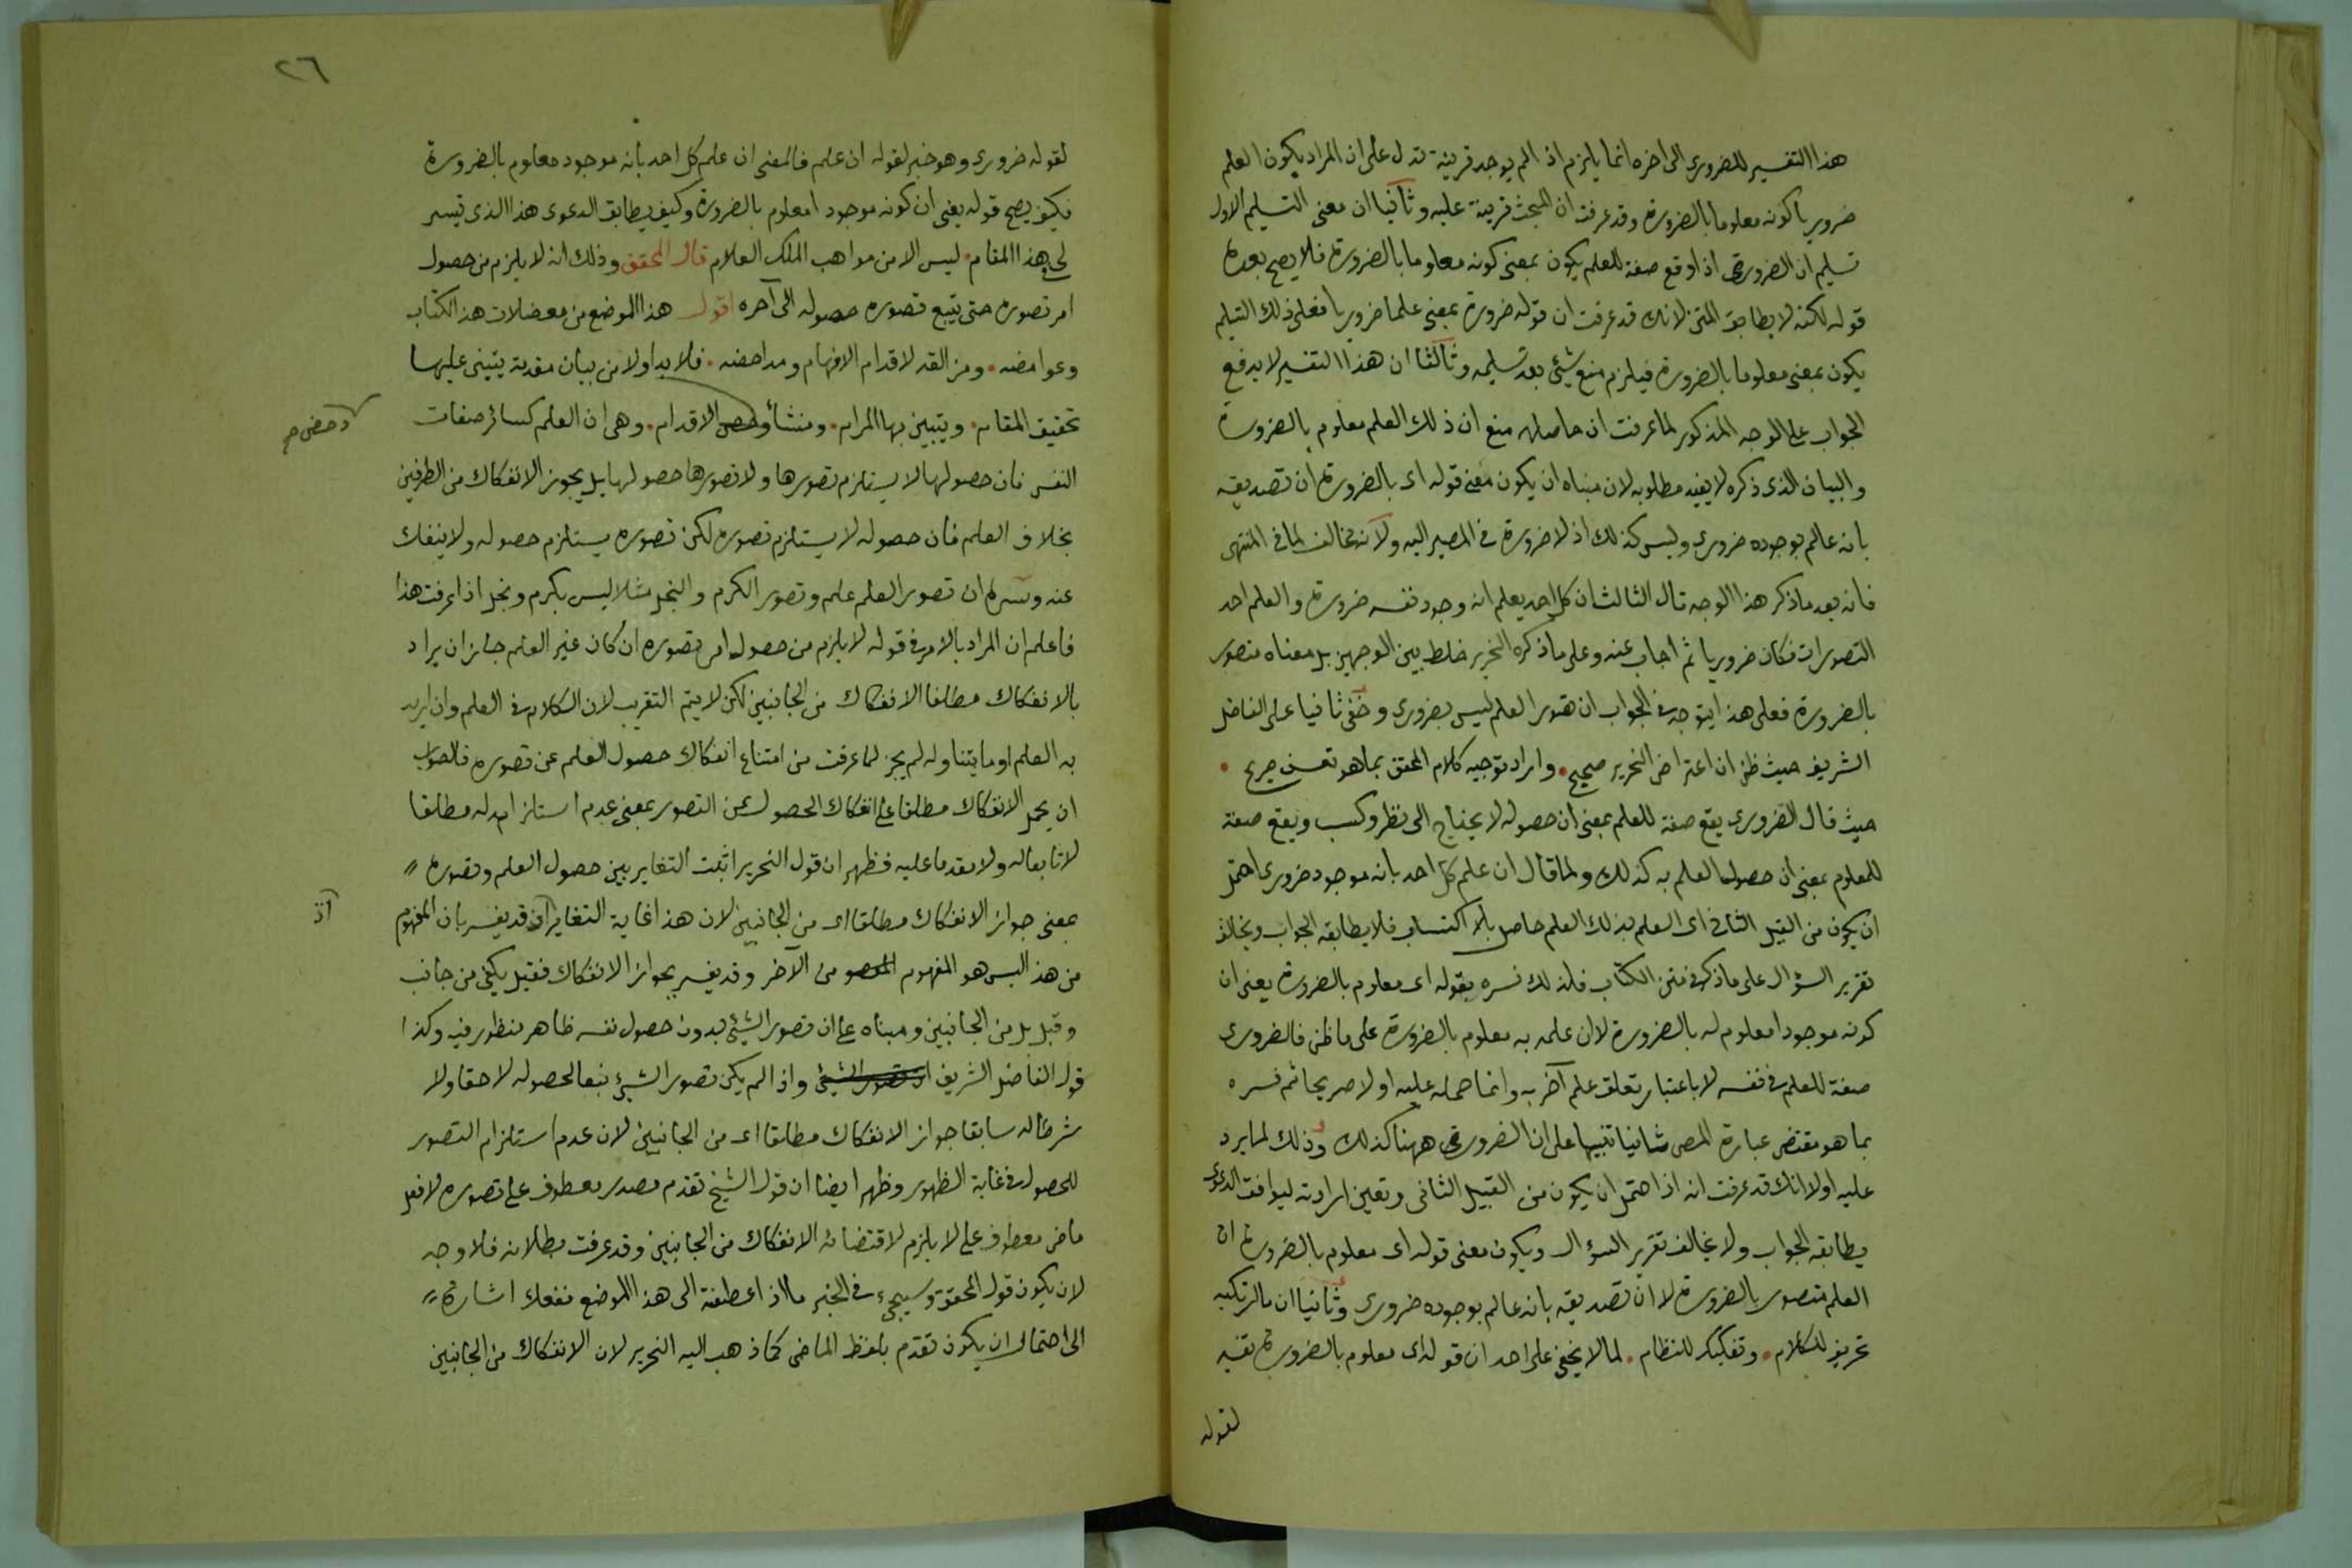 هذا التفسير للضرورى الى اخره انما يلزم اذا لم يوجد قرينة تدل على ان المراد يكون العلم
ضروريا كونه معلوما بالضرورة وقد عرفت ان المبحث قرينة عليه وثانيا ان معنى التسليم الاول
تسليم ان الضرورى اذا وقع صفة للعلم يكون بمعنى كونه معلوما بالضرورة فلا يصح بعده
قوله لكنه لا يطابق المتن لانك قد عرفت ان قوله ضرورة بمعنى علما ضروريا فعلى ذلك التسليم
يكون بمعنى معلوما بالضرورة فيلزم منع شيئ بعد تسليمه وثالثا ان هذا التفسير لا يدفع
الجواب على الوجه المذكور لما عرفت ان حاصله منع ان ذلك العلم معلوم بالضرورة
والبيان الذى ذكره لا يفيد مطلوبه لان مبناه ان يكون معنى قوله اى بالضرورة ان تصديقه
بانه عالم بوجوده ضرورى وليس كذلك اذ لا ضرورة فى المصير اليه ولانه مخالف لما فى المنتهى
فانه بعد ما ذكر هذا الوجه قال الثالث ان كل احد يعلم انه وجود نفسه ضرورة والعلم احد
التصورات فكان ضروريا ثم اجاب عنه وعلى ما ذكره النحرير خلط بين الوجهين بل معناه متصور
بالضرورة فعلى هذا يتوجه فى الجواب ان تصور العلم ليس بضرورى وخفى ثانيا على الفاضل
الشريف حيث ظن ان اعتراض النحرير صحيح واراد توجيه كلام المحقق بما هو تعسف صريح
حيث قال الضرورى يقع صفة للعلم بمعنى ان حصوله لا يحتاج الى نظر وكسب ويقع صفة
للمعلوم بمعنى ان حصول العلم به كذلك ولما قال ان علم كل احد بانه موجود ضرورى احتمل
ان يكون من القبيل الثانى اى العلم بذلك العلم حاصل بلا اكتساب فلا يطابقه الجواب ويخالف
تقرير السؤال على ما ذكر فى متن الكتاب فلذلك فسره بقوله اى معلوم بالضرورة يعنى ان
كونه موجودا معلوم له بالضرورة لا ان علمه به معلوم بالضرورة على ما ظن فالضرورى
صفة للعلم فى نفسه لا باعتبار تعلق علم آخر به وانما حمله عليه اولا صريحا ثم فسره
بما هو مقتضى عبارة المص ثانيا تنبيها على ان الضرورى ههنا كذلك وذلك لما يرد
عليه اولا انك قد عرفت انه اذا احتمل ان يكون من القبيل الثانى وتعين ارادته ليوافق الدعوى
يطابقه الجواب ولا يخالف تقرير السؤال ويكون معنى قوله اى معلوم بالضرورة ان
العلم متصور بالضرورة لا ان تصديقه بانه عالم بوجوده ضرورى وثانيا ان ما ارتكبه
تحريف للكلام وتفكيك للنظام لما لا يخفى على احد ان قوله اى معلوم بالضرورة تفسير
لقوله
٢٦
لقوله ضرورى وهو خبر لقوله ان علم فالمعنى ان علم كل احد بانه موجود معلوم بالضرورة
فكيف يصح قوله يعنى ان كونه موجودا معلوم بالضرورة وكيف يطابق الدعوى هذا الذى تيسر
لى بهذا المقام ليس الا من مواهب الملك العلام قال المحقق وذلك انه لا يلزم من حصول
امر تصوره حتى يتبع تصوره حصوله الى آخره اقول هذا الموضع من معضلات هذا الكتاب
وغوامضه ومزالقه لاقدام الافهام ومداحضه فلا بد اولا من بيان مقدمة يبتنى عليها
تحقيق المقام ويتبين بها المرام ومنشأ الاقدام وهى ان العلم كسائر صفات
دحض صح
النفس فان حصولها لا يستلزم تصورها ولا تصورها حصولها بل يجوز الانفكاك من الطرفين
بخلاف العلم فان حصوله لا يستلزم تصوره لكن تصوره يستلزم حصوله ولا ينفك
عنه وسره ان تصور العلم علم وتصور الكرم والبخل مثلا ليس بكرم وبخل اذا عرفت هذا
فاعلم ان المراد بالامر فى قوله لا يلزم من حصول امر تصوره ان كان غير العلم جاز ان يراد
بالانفكاك مطلقا الانفكاك من الجانبين لكن لا يتم التقريب لان الكلام فى العلم وان اريد
به العلم او ما يتناوله لم يجز لما عرفت من امتناع انفكاك حصول العلم عن تصوره فالصواب
ان يحمل الانفكاك مطلقا على انفكاك الحصول عن التصور بمعنى عدم استلزامه له مطلقا
لا تابعا له ولا متقدما عليه فظهر ان قول النحرير اثبت التغاير بين حصول العلم وتصوره
بمعنى جواز الانفكاك مطلقا اى من الجانبين لان هذا غاية التغاير قد يفسر بان المفهوم
اذ
من هذا ليس هو المفهوم من الآخر وقد يفسر بجواز الانفكاك فقيل يكفى من جانب
وقيل بل من الجانبين ومبناه على ان تصور الشيئ بدون حصول نفسه ظاهر منظور فيه وكذا
قول الفاضل الشريف واذا لم يكن تصور الشيئ تبعا لحصوله لاحقا ولا
شرطا له سابقا جواز الانفكاك مطلقا اى من الجانبين لان عدم استلزام التصور
للحصول فى غاية الظهور وظهر ايضا ان قول الشيخ تقدم مصدر معطوف على تصوره لا فعل
ماض معطوف على لا يلزم لاقتضائه الانفكاك من الجانبين وقد عرفت بطلانه فلا وجه
لان يكون قول المحقق وسيجئ فى الخبر ما اذا عطفته الى هذا الموضع نفعك اشارة
الى احتمال ان يكون تقدم بلفظ الماضى كما ذهب اليه النحرير لان الانفكاك من الجانبين